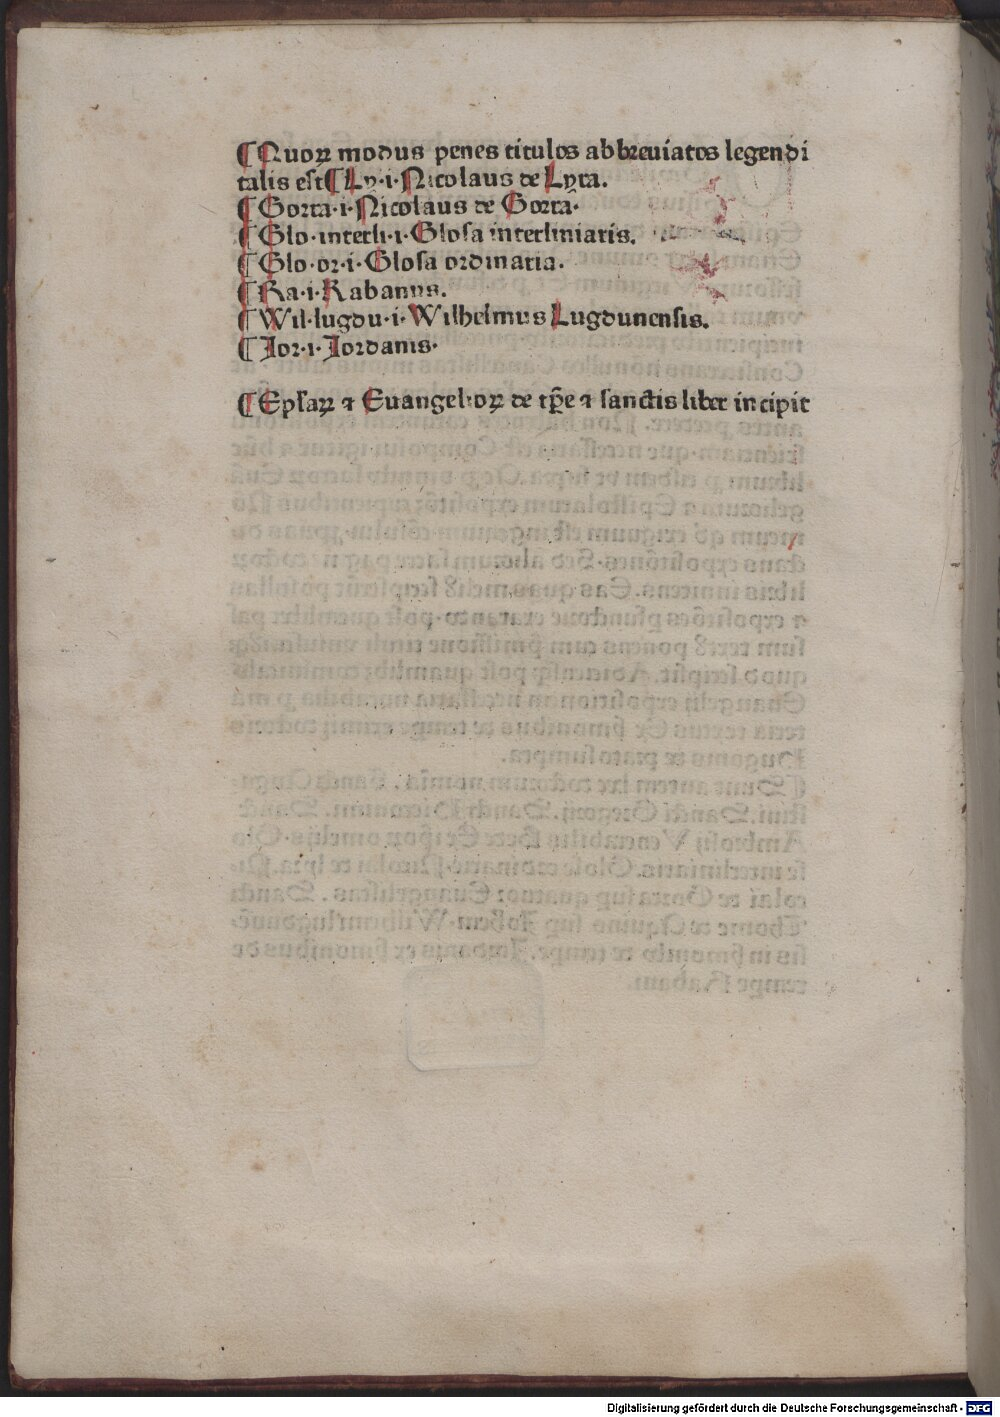 ¶ Quoꝝ modus penes titulos abbreuiatos legendi
talis est ¶ Ly·i·Nicolaus de Lyra.
¶ Gorra·i·Nicolaus de Gorra·
¶ Glo·interli·i·Glosa interliniaris.
¶ Glo·or·i·Glosa ordinaria.
¶ Ra·i·Rabanus.
¶ Wil·lugdu·i·Wilhelmus Lugdunensis.
¶ Jor·i·Jordanis·
¶ Epsaꝝ ⁊ Euangelioꝝ de tp̄e ⁊ sanctis liber incipit
Digitalisierung gefördert durch die Deutsche Forschungsgemeinschaft - DFG